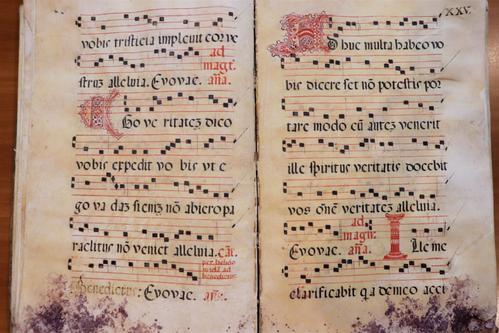 vobis tristicia implevit cor ve
ad
magt.
struz alleluia. Evovae. aña.
Ego ve ritatez dico
vobis expedit vo bis vt e
go va daz si eniz nō abiero pa
raclitus nō veniet alleluia. cāt.
per hebdo
madā ad
Benedictus: Evovae. aña.
XXV.
Adhuc multa habeo vo
bis dicere set nō potestis por
tare modo cū autez venerit
ille spiritus veritatis docebit
vos onēe veritatez alleluia.
ad
magt.
Evovae. aña. Ille me
clarificabit q a demeo acci